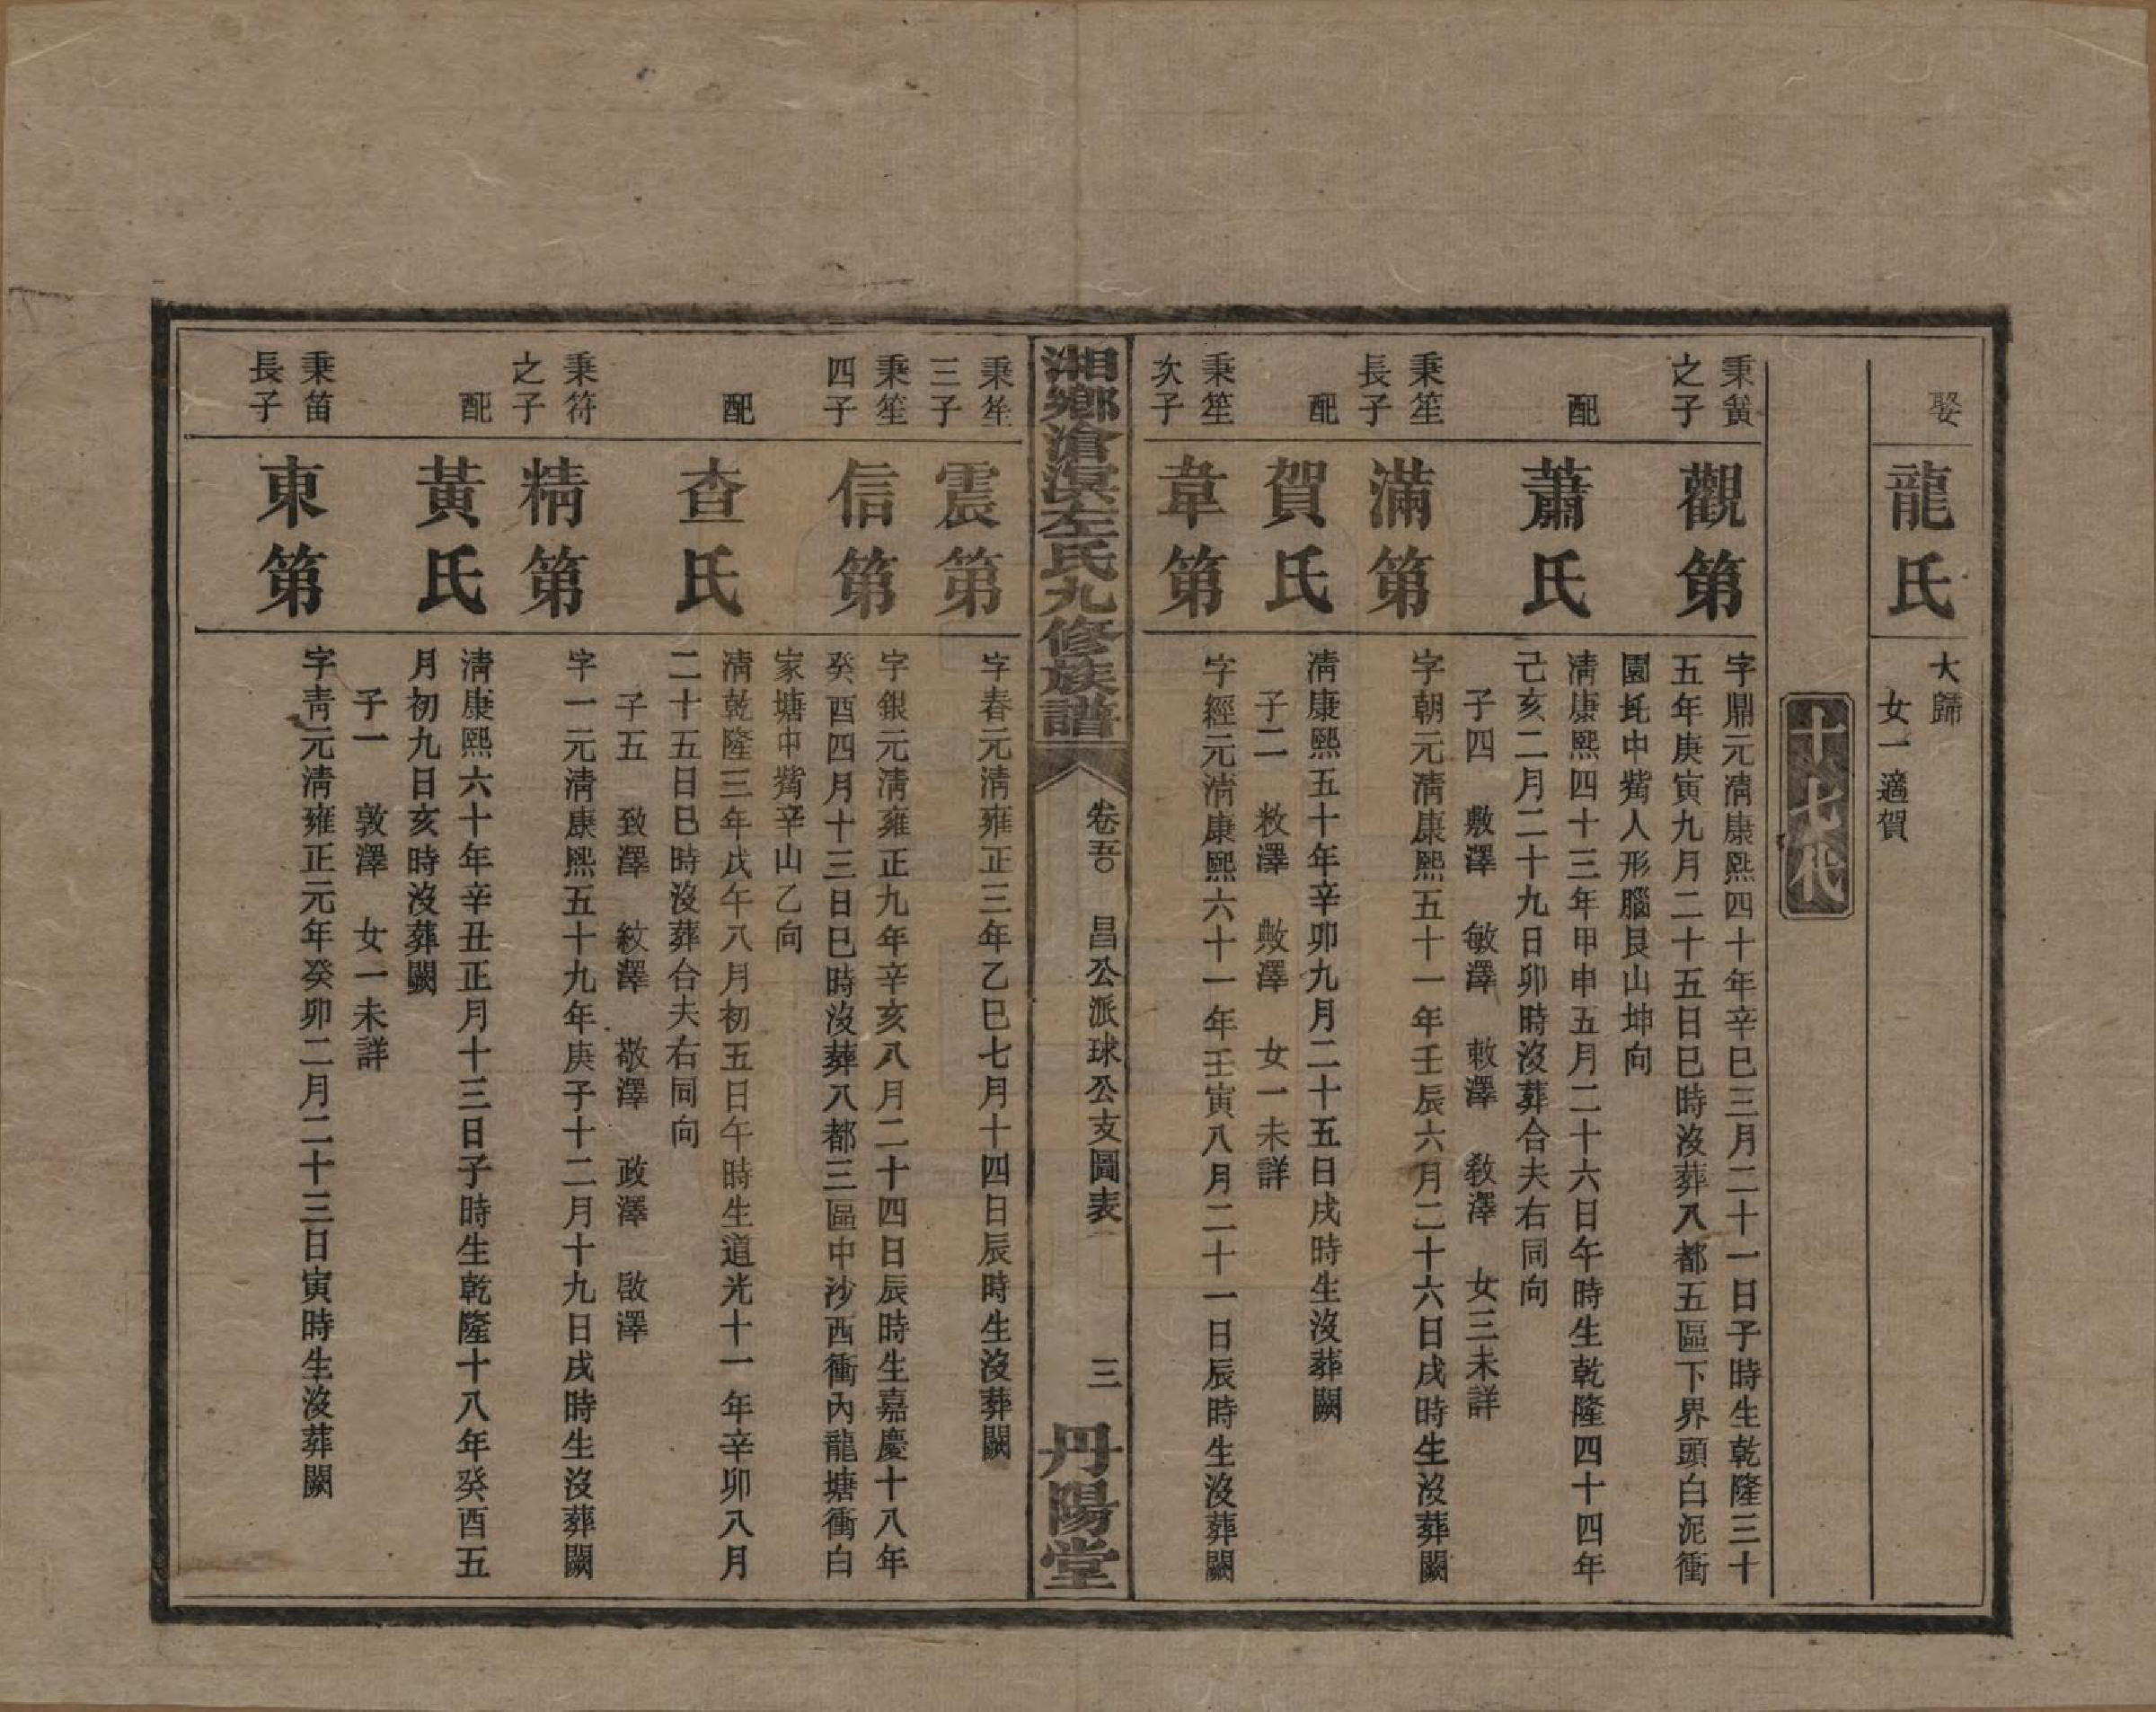 娶
龍氏
大歸
女一適賀
十七代
秉簧
之子
觀第
字鼎元清康熙四十年辛巳三月二十一日子時生乾隆三十
五年庚寅九月二十五日巳時沒葬八都五區下界頭白泥衝
園坉中觜人形腦艮山坤向
配
蕭氏
清康熙四十三年甲申五月二十六日午時生乾隆四十四年
己亥二月二十九日卯時沒葬合夫右同向
子四 敷澤 敏澤 敕澤 敎澤 女三未詳
秉笙
長子
滿第
字朝元清康熙五十一年壬辰六月二十六日戌時生沒葬闕
配
賀氏
清康熙五十年辛卯九月二十五日戌時生沒葬闕
子二 敉澤 敟澤 女一未詳
秉笙
次子
韋第
字經元清康熙六十一年壬寅八月二十一日辰時生沒葬闕
湘鄉滄溟左氏九修族譜
卷五
昌公派球公支圖表
三
丹陽堂
秉笙
三子
震第
字春元清雍正三年乙巳七月十四日辰時生沒葬闕
秉笙
四子
信第
字銀元清雍正九年辛亥八月二十四日辰時生嘉慶十八年
癸酉四月十三日巳時沒葬八都三區中沙西衝內龍塘衝白
家塘中觜辛山乙向
配
查氏
清乾隆三年戊午八月初五日午時生道光十一年辛卯八月
二十五日巳時沒葬合夫右同向
子五 致澤 紋澤 敬澤 政澤 啟澤
秉符
之子
精第
字一元清康熙五十九年庚子十二月十九日戌時生沒葬闕
配
黃氏
清康熙六十年辛丑正月十三日子時生乾隆十八年癸酉五
月初九日亥時沒葬闕
子一 敦澤 女一未詳
秉笛
長子
東第
字青元清雍正元年癸卯二月二十三日寅時生沒葬闕